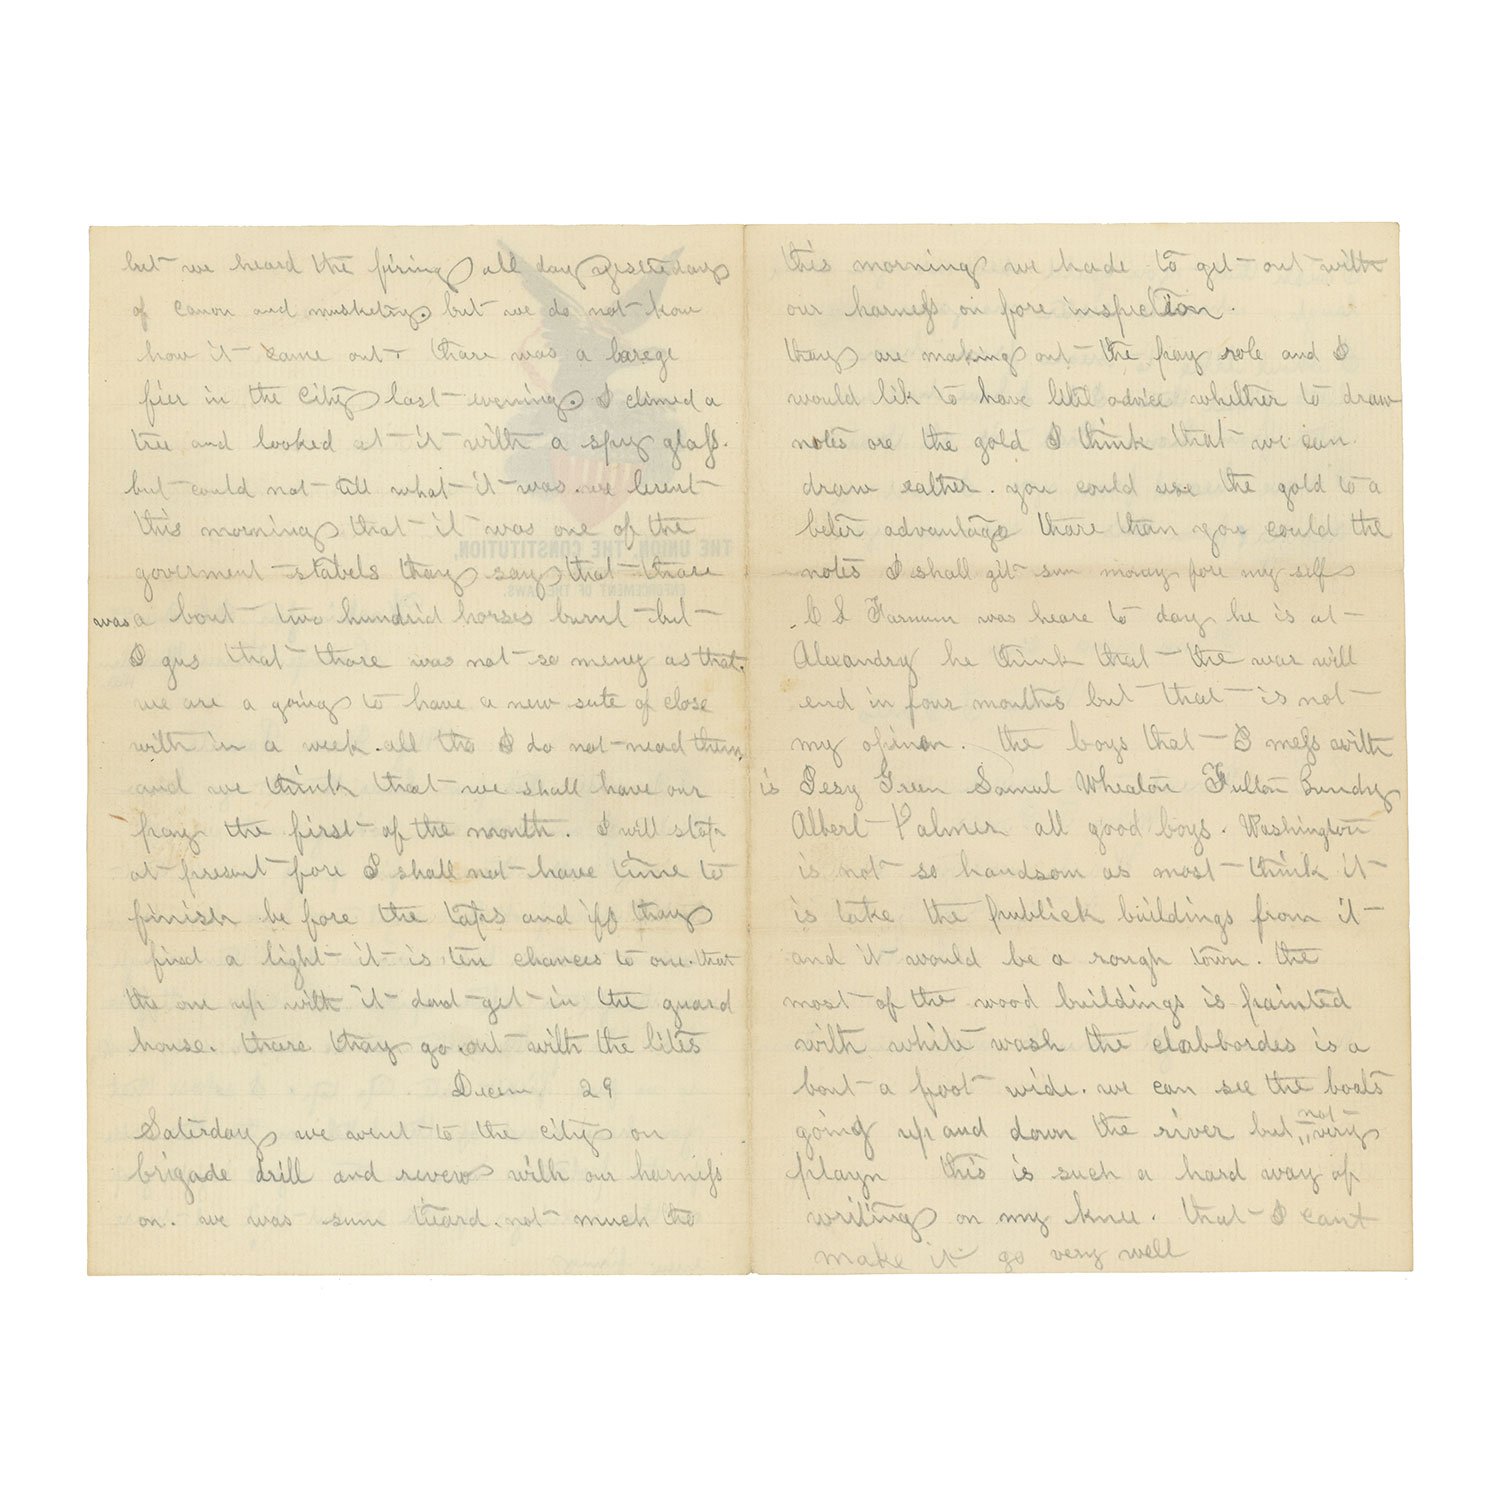 but we heard the firing all day yesterday
of canon and musketry. but we do not know
how it came out. thare was a larege
fier in the City last evening. I climed a
tree and looked at it with a spy glass.
but could not till what it was. we lernt
this morning that it was one of the
goverment stabels thay say that thare
was a bout two hundrid horses burnt but
I gus that thare was not so meny as that.
we are a going to have a new sute of close
with in a week. all tho I do not nead them
and we think that we shall have our
pay the first of the month. I will stop
at present fore I shall not have time to
finish be fore the taps and if thay
find a light it is ten chances to one. that
the one up with it dont get in the guard
house. thare thay go out with the lites
Decem 29
Saterday we went to the city on
brigade drill and revew with our harness
on. we was sum tierd. not much tho
this morning we hade to get out with
our harness on fore inspection.
thay are making out the pay role and I
would lik to have litil advice whether to draw
notes ore the gold I think that we can
draw eather. you could use the gold to a
beter advantage thare than you could the
notes I shall git sum money fore my self
C S Farnum was heare to day he is at
Alexandry he think that the war will
end in four months but that is not
my opinon. the boys that I mess with
is Jesy Green Samul Wheaton Fulton Bundy
Albert Palmer all good boys. Washington
is not so handsom as most think it
is take the publick buildings from it
and it would be a rough town. the
most of the wood buildings is painted
with white wash the clabbordes is a
bout a foot wide. we can see the boats
going up and down the river but not very
playn this is such a hard way of
writing on my knee. that I cant
make it go very well
THE UNION, THE CONSTITUTION,
ENFORCEMENT OF THE LAWS.